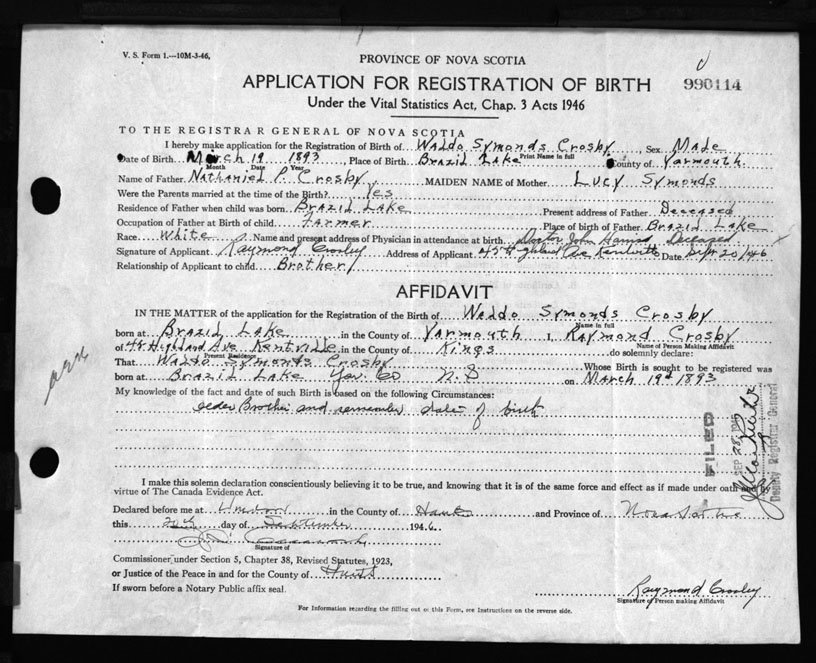 V. S. Form 1.—10M-3-46.
PROVINCE OF NOVA SCOTIA
APPLICATION FOR REGISTRATION OF BIRTH
990114
Under the Vital Statistics Act, Chap. 3 Acts 1946
TO THE REGISTRAR GENERAL OF NOVA SCOTIA
I hereby make application for the Registration of Birth of Waldo Symonds Crosby, Sex Male
Print Name in full
Date of Birth March 19 1893, Place of Birth Brazil Lake County of Yarmouth.
Month Date Year
Name of Father Nathaniel P. Crosby, MAIDEN NAME of Mother Lucy Symonds
Were the Parents married at the time of the Birth? Yes
Residence of Father when child was born Brazil Lake Present address of Father Deceased
Occupation of Father at Birth of child Farmer Place of birth of Father Brazil Lake
Race White Name and present address of Physician in attendance at birth Doctor John Deceased
Signature of Applicant Raymond Crosby Address of Applicant 48 Highland Ave Kentville Date Sept 20/46
Relationship of Applicant to child Brother
AFFIDAVIT
IN THE MATTER of the application for the Registration of the Birth of Waldo Symonds Crosby
Name in full
born at Brazil Lake in the County of Yarmouth I, Raymond Crosby
Name of Person Making Affidavit
of 48 Highland Ave Kentville in the County of Kings do solemnly declare:
Present Residence
That Waldo Symonds Crosby Whose Birth is sought to be registered was
born at Brazil Lake Yar. Co N.S on March 19th 1893
My knowledge of the fact and date of such Birth is based on the following Circumstances:
older Brother and remember date of birth
FILED
SEP 28 1946
Deputy Registrar General
I make this solemn declaration conscientiously believing it to be true, and knowing that it is of the same force and effect as if made under oath and by
virtue of The Canada Evidence Act.
Declared before me at Windsor in the County of Hants and Province of Nova Scotia
this 20th day of September 1946
Signature of
Commissioner under Section 5, Chapter 38, Revised Statutes, 1923,
or Justice of the Peace in and for the County of Hants
If sworn before a Notary Public affix seal.
Raymond Crosby
Signature of Person making Affidavit
For Information regarding the filling out of this Form, see Instructions on the reverse side.